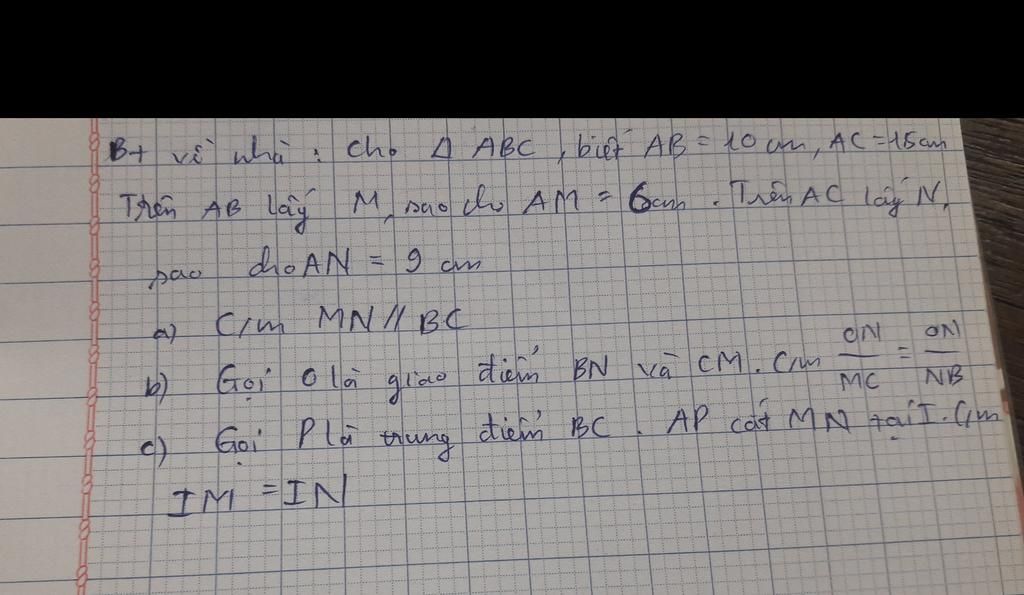 B+ về nhà : cho Δ ABC , biết AB = 10 cm, AC = 15cm
Trên AB lấy M, sao cho AM = 6cm . Trên AC lấy N,
sao cho AN = 9 cm
a) C/m MN // BC
b) Gọi O là giao điểm BN và CM . C/m ON/MC = ON/NB
c) Gọi P là trung điểm BC . AP cắt MN tại I . C/m
IM = IN